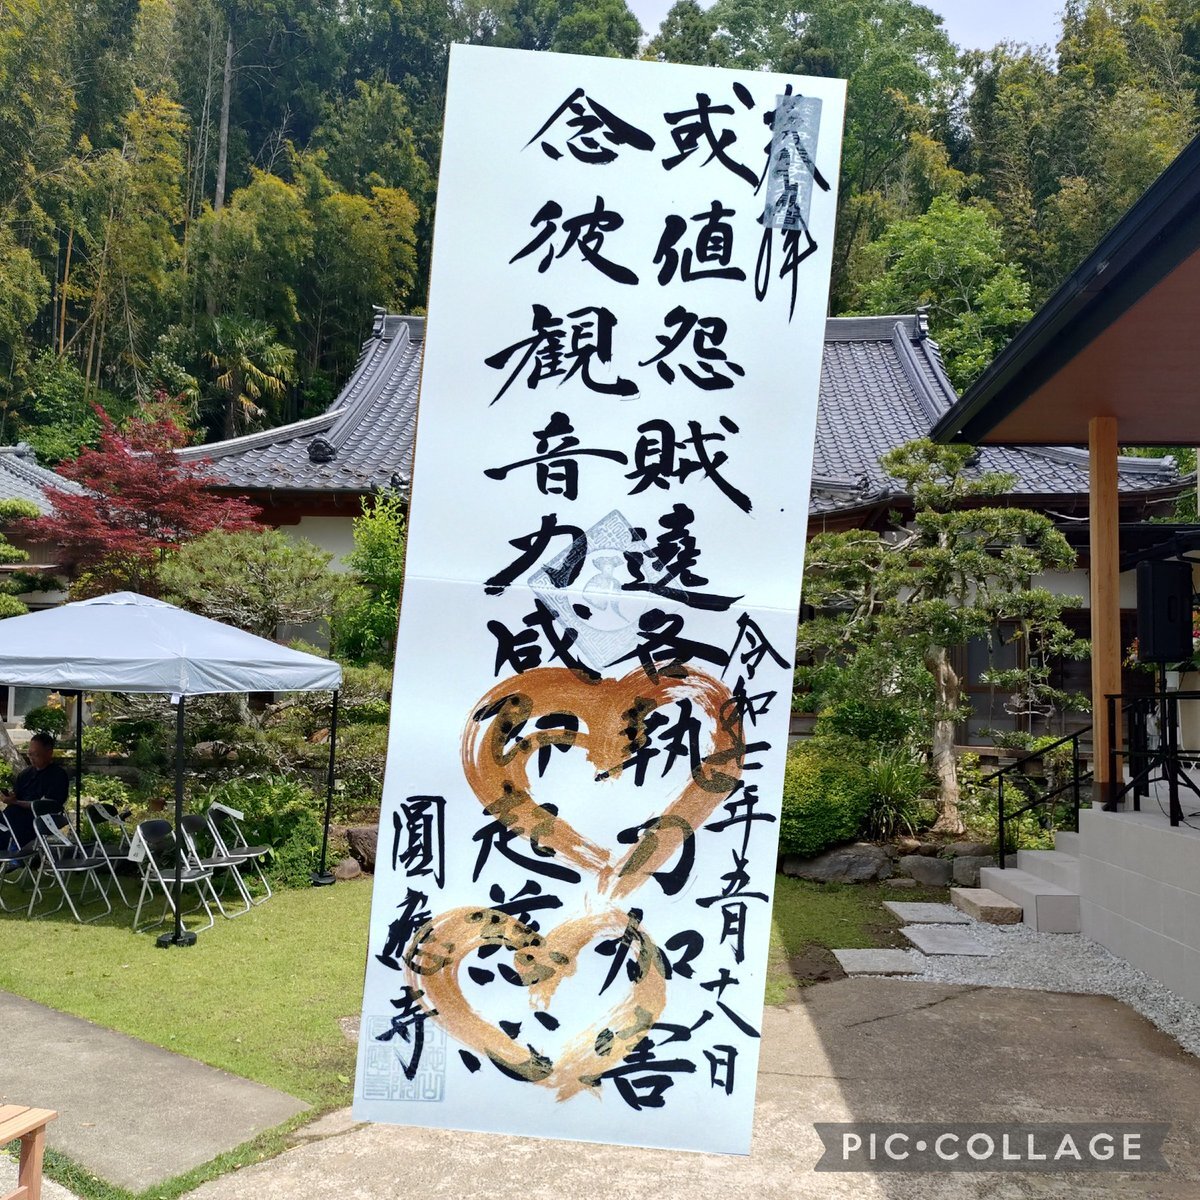 奉拝
或値怨賊遶各執刀加害
念彼観音力咸即起慈心
令和七年五月十八日
圓應寺
PIC•COLLAGE